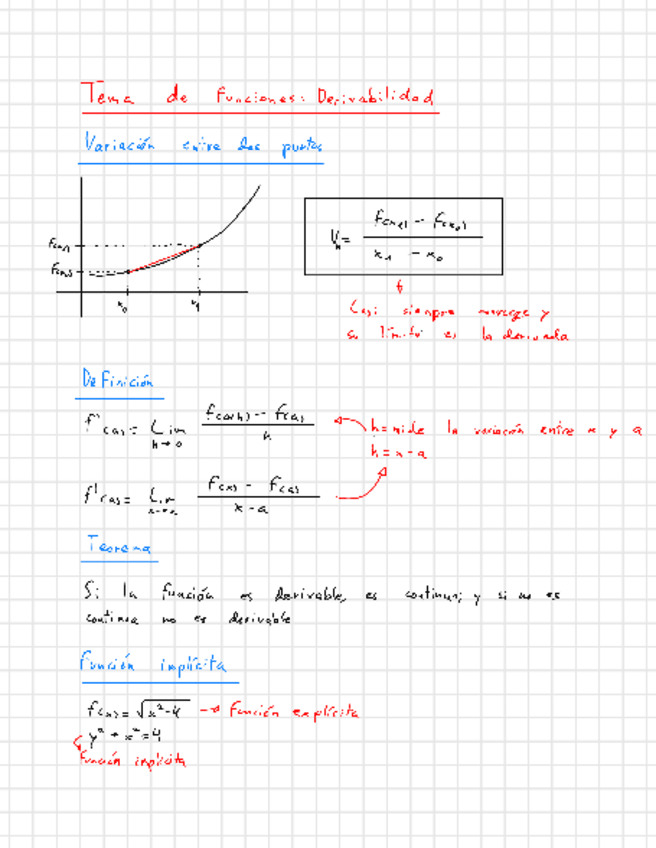 Tema de Funciones: Derivabilidad
Variación entre dos puntos
f(x₁)
f(x₀)
x₀ x₁
= f(x₁) - f(x₀) / x₁ - x₀
Casi siempre converge y
su límite es la derivada
Definición
f'(a) = Lim h→0 f(a+h) - f(a) / h
h = mide la variación entre x y a
h = x - a
f'(a) = Lim x→a f(x) - f(a) / x - a
Teorema
Si la función es derivable, es continua; y si no es
continua no es derivable
Función implícita
f(x) = √x²-4 → Función explícita
y² + x² = 4
Función implícita